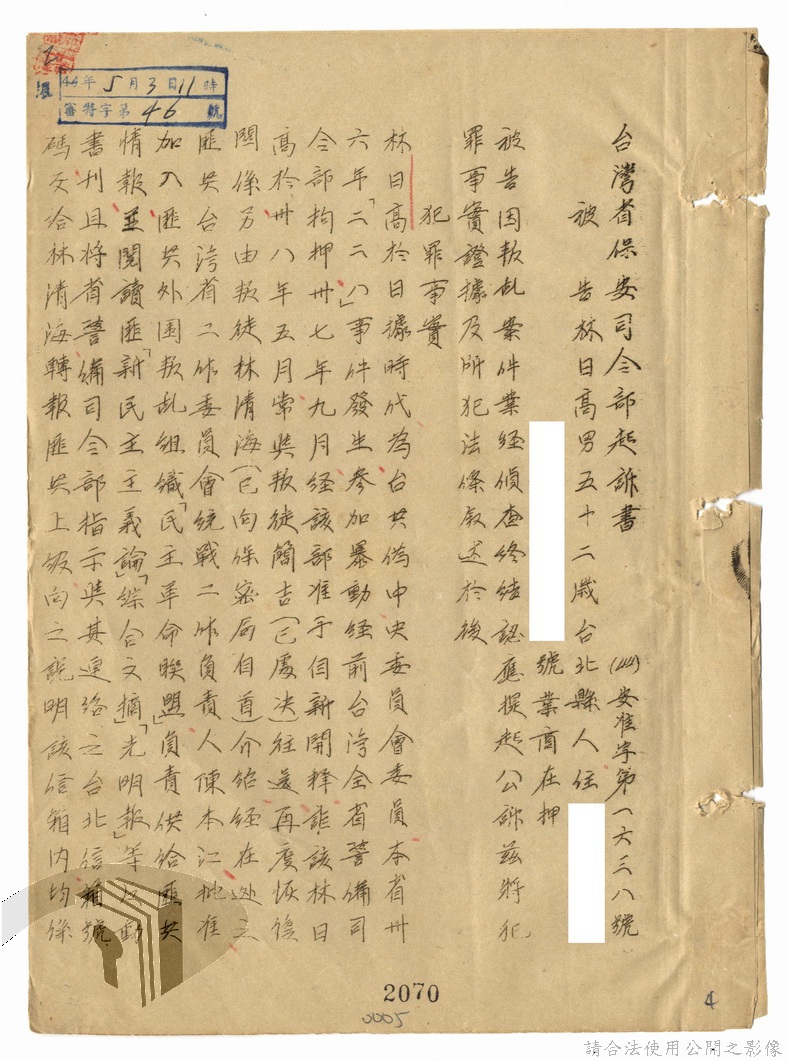 44年5月3日11時
審特字第46號
台灣省保安司令部起訴書
(44)安准字第一六三八號
被告林日高男五十二歲台北縣人住
號業商在押
被告因叛乱案件業経偵查終結認應提起公訴茲將犯
罪事實證據及所犯法條敘述於後
犯罪事實
林日高於日據時代為台共偽中央委員會委員本省卅
六年「二二八」事件發生參加暴動経前台湾全省警備司
令部拘押卅七年九月経該部准予自新開釋詎該林日
高於卅八年五月常與叛徒簡吉(已處决)往還再度恢復
關係另由叛徒林清海(已向保密局自首)介紹経在逃之
匪共台湾省工作委員會統戰工作負責人陳本江批准
加入匪共外围叛乱組織「民主革命聯盟」負責供給匪共
情報並閱讀匪「新民主主義論」「綜合文摘」「光明報」等反動
書刊且將省警備司令部指示與其連絡之台北信箱號
碼交洽林清海轉報匪共上级向之說明該信箱内均係
2070
0005
4
請合法使用公開之影像